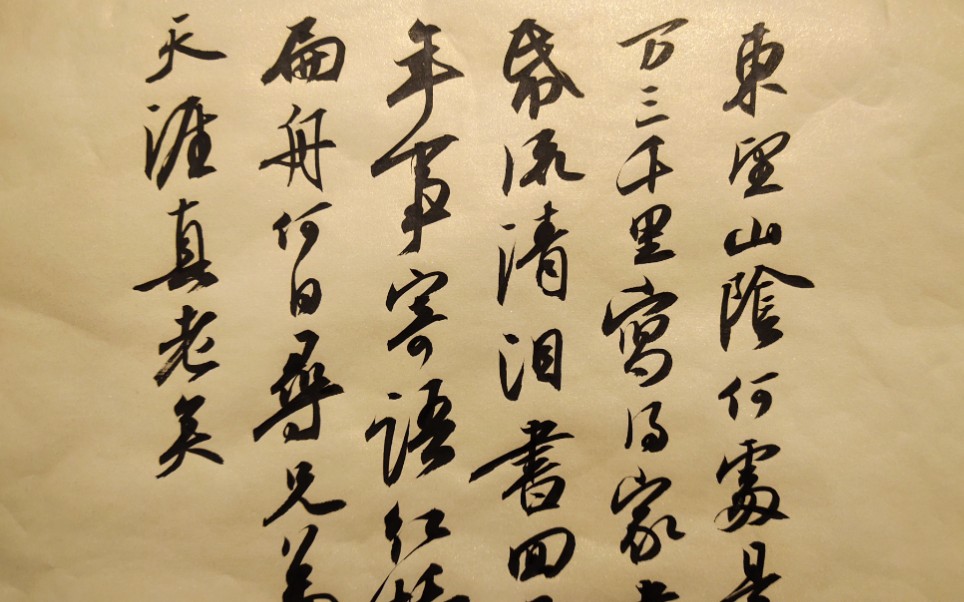 東望山陰何處是
万三千里寫得家
帋流清泪書回
年事寄語红
扁舟何日尋兄弟
天涯真老矣